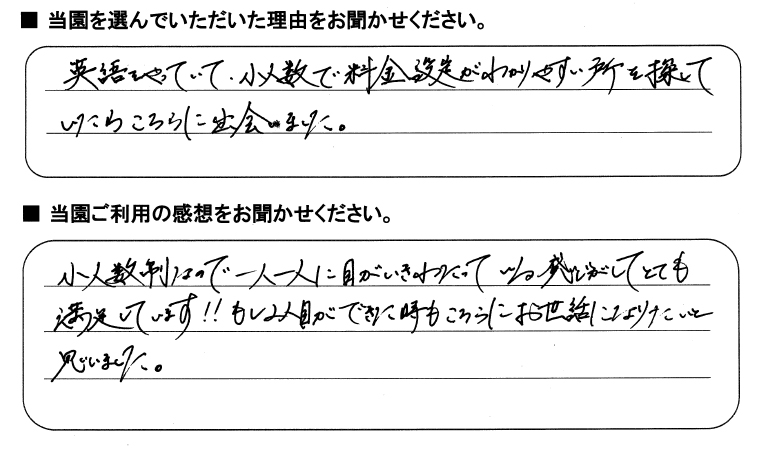 ■ 当園を選んでいただいた理由をお聞かせください。
英語をやっていて、小人数で料金設定がわかりやすい所を探して
いたらこちらに出会いました。
■ 当園ご利用の感想をお聞かせください。
小人数制なので一人一人に目がいきわたっている感じがしてとても
満足しています!! もし2人目ができた時もこちらにお世話になりたいと
思いました。